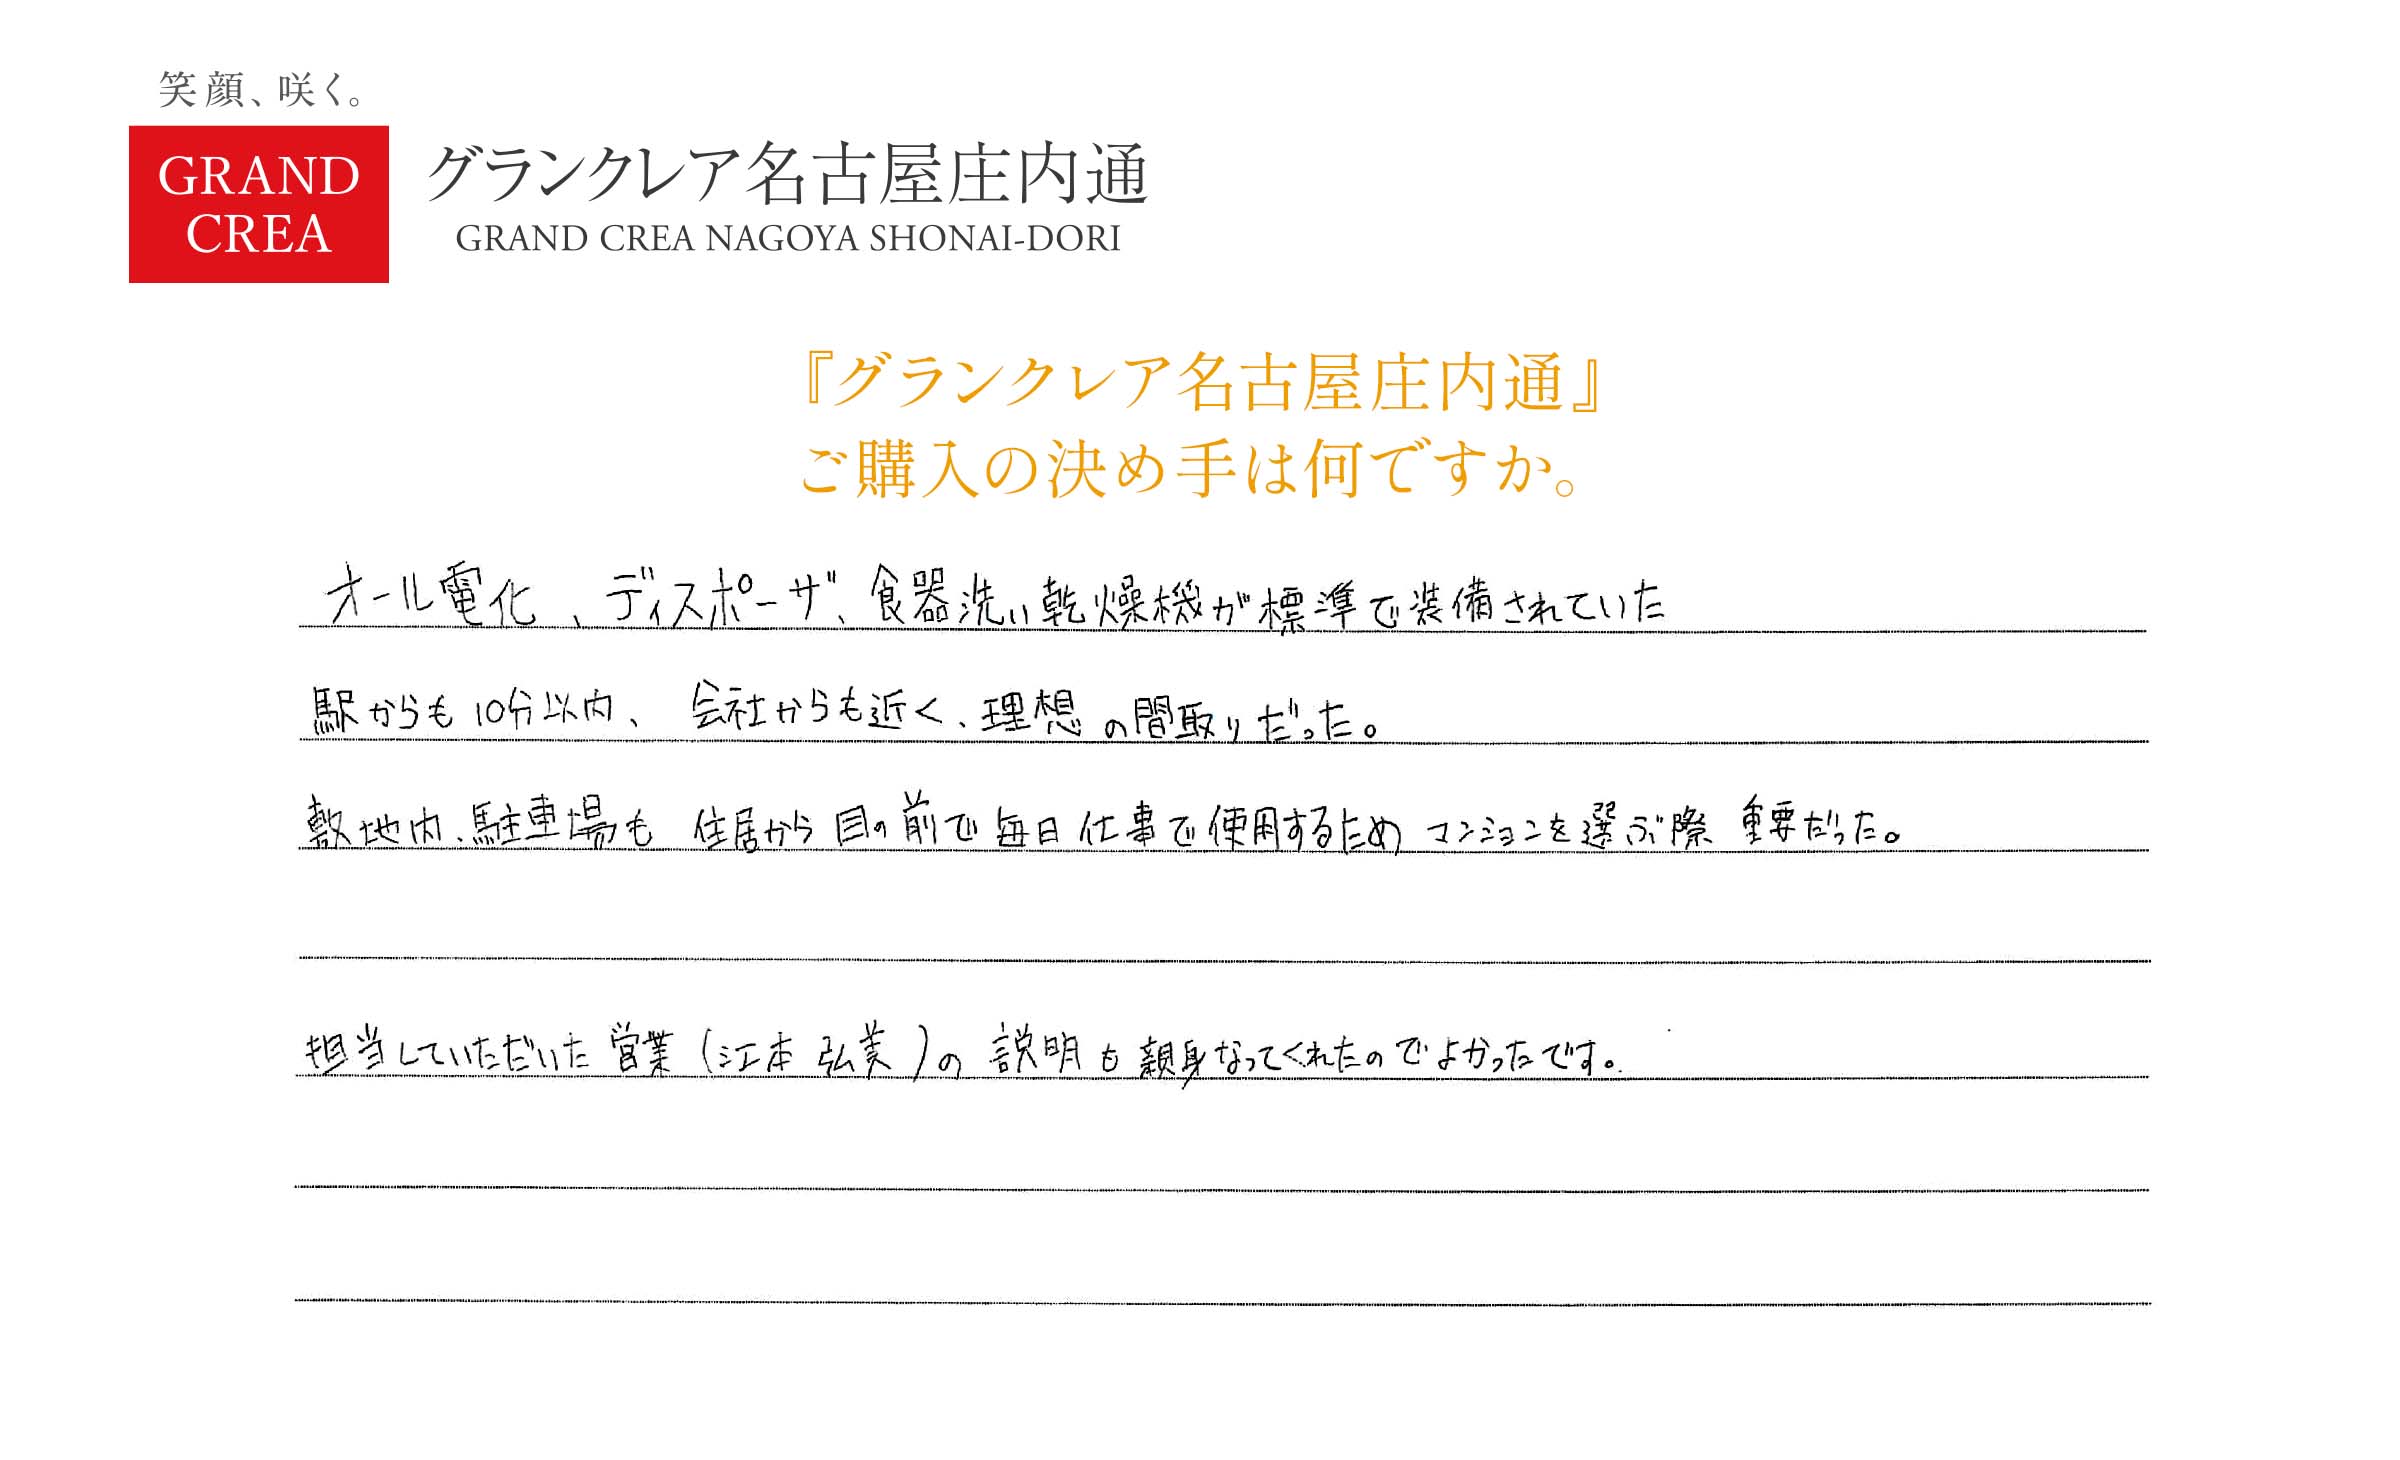 笑顔、咲く。
GRAND
CREA
グランクレア名古屋庄内通
GRAND CREA NAGOYA SHONAI-DORI
『グランクレア名古屋庄内通』
ご購入の決め手は何ですか。
オール電化、ディスポーザ、食器洗い乾燥機が標準で装備されていた
駅からも10分以内、会社からも近く、理想の間取りだった。
敷地内、駐車場も 住居から目の前で毎日仕事で使用するため マンションを選ぶ際 重要だった。
担当していただいた営業(江本 弘美)の 説明も親身なってくれたのでよかったです。